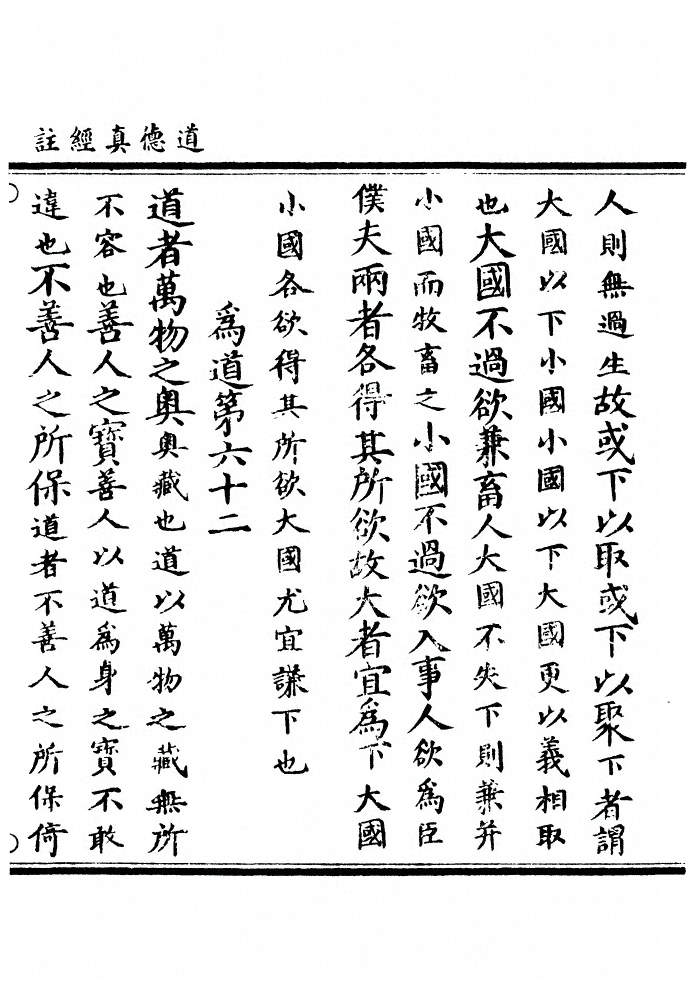 道德真經註
人則無過生故或下以取或下以聚下者謂
大國以下小國小國以下大國更以義相取
也大國不過欲兼畜人大國不失下則兼并
小國而牧畜之小國不過欲入事人欲為臣
僕夫兩者各得其所欲故大者宜為下大國
小國各欲得其所欲大國尤宜謙下也
為道第六十二
道者萬物之奧奧藏也道以萬物之藏無所
不容也善人之寶善人以道為身之寶不敢
違也不善人之所保道者不善人之所保倚